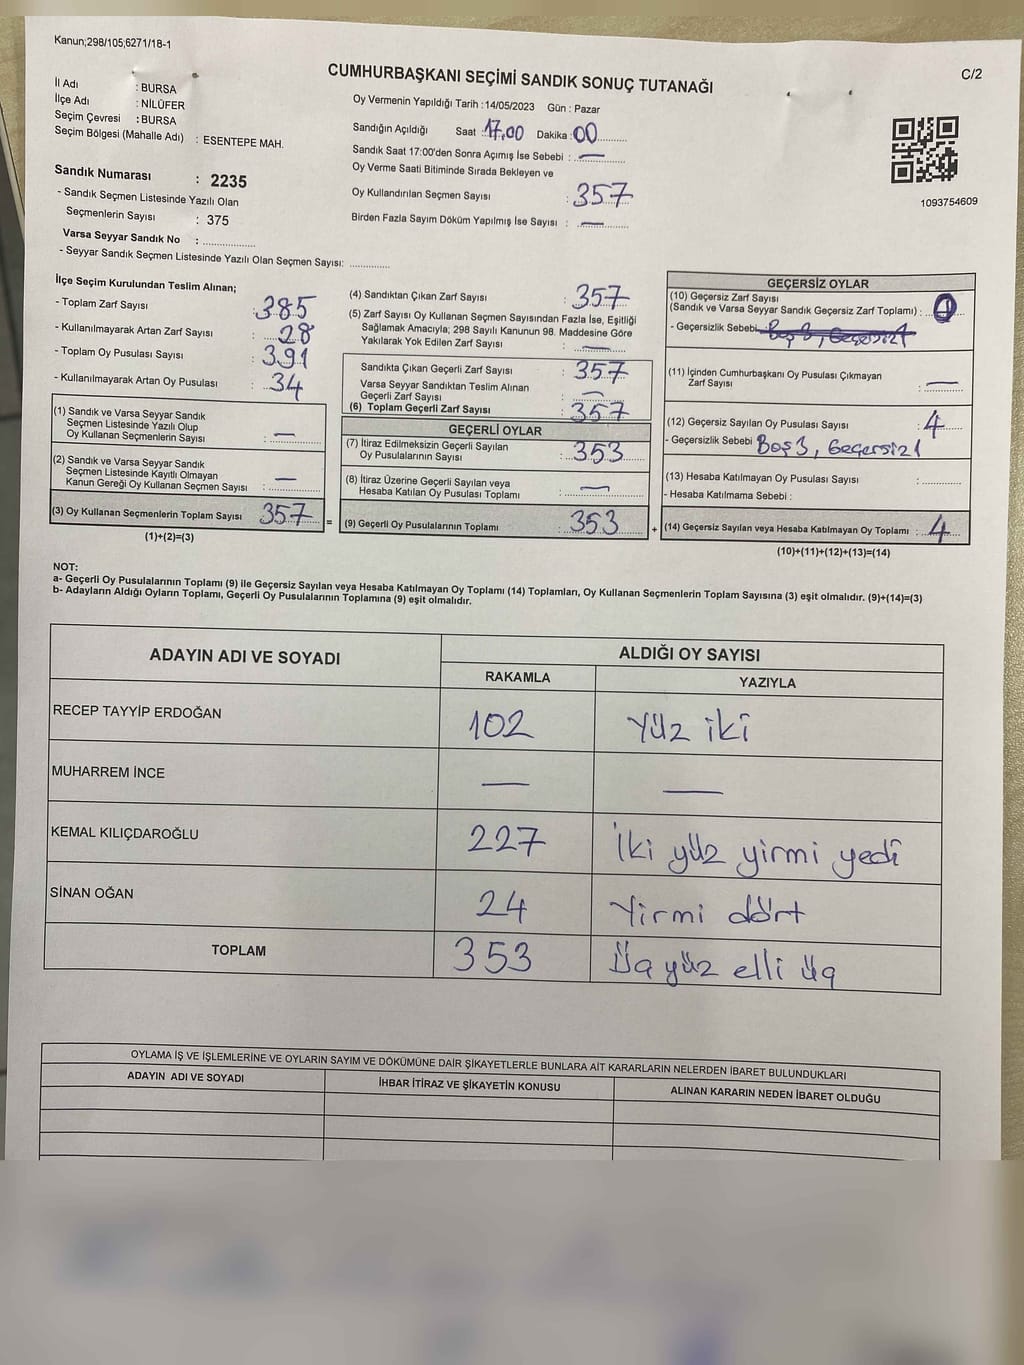 Kanun;298/105;6271/18-1
C/2
CUMHURBAŞKANI SEÇİMİ SANDIK SONUÇ TUTANAĞI
İl Adı : BURSA
İlçe Adı : NİLÜFER
Seçim Çevresi : BURSA
Seçim Bölgesi (Mahalle Adı) : ESENTEPE MAH.
Sandık Numarası : 2235
- Sandık Seçmen Listesinde Yazılı Olan
Seçmenlerin Sayısı : 375
Varsa Seyyar Sandık No : ................
- Seyyar Sandık Seçmen Listesinde Yazılı Olan Seçmen Sayısı: .............
Oy Vermenin Yapıldığı Tarih : 14/05/2023 Gün : Pazar
Sandığın Açıldığı Saat : 17.00 Dakika : 00
Sandık Saat 17:00'den Sonra Açımış İse Sebebi : —
Oy Verme Saati Bitiminde Sırada Bekleyen ve
Oy Kullandırılan Seçmen Sayısı : 357
Birden Fazla Sayım Döküm Yapılmış İse Sayısı : —
1093754609
İlçe Seçim Kurulundan Teslim Alınan;
- Toplam Zarf Sayısı : 385
- Kullanılmayarak Artan Zarf Sayısı : 28
- Toplam Oy Pusulası Sayısı : 391
- Kullanılmayarak Artan Oy Pusulası : 34
(1) Sandık ve Varsa Seyyar Sandık
Seçmen Listesinde Yazılı Olup
Oy Kullanan Seçmenlerin Sayısı : —
(2) Sandık ve Varsa Seyyar Sandık
Seçmen Listesinde Kayıtlı Olmayan
Kanun Gereği Oy Kullanan Seçmen Sayısı : —
(3) Oy Kullanan Seçmenlerin Toplam Sayısı 357 =
(1)+(2)=(3)
(4) Sandıktan Çıkan Zarf Sayısı : 357
(5) Zarf Sayısı Oy Kullanan Seçmen Sayısından Fazla İse, Eşitliği
Sağlamak Amacıyla; 298 Sayılı Kanunun 98. Maddesine Göre
Yakılarak Yok Edilen Zarf Sayısı : —
Sandıkta Çıkan Geçerli Zarf Sayısı : 357
Varsa Seyyar Sandıktan Teslim Alınan
Geçerli Zarf Sayısı : —
(6) Toplam Geçerli Zarf Sayısı : 357
GEÇERLİ OYLAR
(7) İtiraz Edilmeksizin Geçerli Sayılan
Oy Pusulalarının Sayısı : 353
(8) İtiraz Üzerine Geçerli Sayılan veya
Hesaba Katılan Oy Pusulası Toplamı : —
(9) Geçerli Oy Pusulalarının Toplamı : 353 +
GEÇERSİZ OYLAR
(10) Geçersiz Zarf Sayısı
(Sandık ve Varsa Seyyar Sandık Geçersiz Zarf Toplamı) :
- Geçersizlik Sebebi : Boş 3, Geçersiz 1
(11) İçinden Cumhurbaşkanı Oy Pusulası Çıkmayan
Zarf Sayısı : —
(12) Geçersiz Sayılan Oy Pusulası Sayısı : 4
- Geçersizlik Sebebi Boş 3, Geçersiz 1
(13) Hesaba Katılmayan Oy Pusulası Sayısı : ............
- Hesaba Katılmama Sebebi :
(14) Geçersiz Sayılan veya Hesaba Katılmayan Oy Toplamı : 4
(10)+(11)+(12)+(13)=(14)
NOT:
a- Geçerli Oy Pusulalarının Toplamı (9) ile Geçersiz Sayılan veya Hesaba Katılmayan Oy Toplamı (14) Toplamları, Oy Kullanan Seçmenlerin Toplam Sayısına (3) eşit olmalıdır. (9)+(14)=(3)
b- Adayların Aldığı Oyların Toplamı, Geçerli Oy Pusulalarının Toplamına (9) eşit olmalıdır.
ADAYIN ADI VE SOYADI
ALDIĞI OY SAYISI
RAKAMLA YAZIYLA
RECEP TAYYİP ERDOĞAN 102 Yüz iki
MUHARREM İNCE — —
KEMAL KILIÇDAROĞLU 227 İki yüz yirmi yedi
SİNAN OĞAN 24 Yirmi dört
TOPLAM 353 Üç yüz elli üç
OYLAMA İŞ VE İŞLEMLERİNE VE OYLARIN SAYIM VE DÖKÜMÜNE DAİR ŞİKAYETLERLE BUNLARA AİT KARARLARIN NELERDEN İBARET BULUNDUKLARI
ADAYIN ADI VE SOYADI İHBAR İTİRAZ VE ŞİKAYETİN KONUSU ALINAN KARARIN NEDEN İBARET OLDUĞU